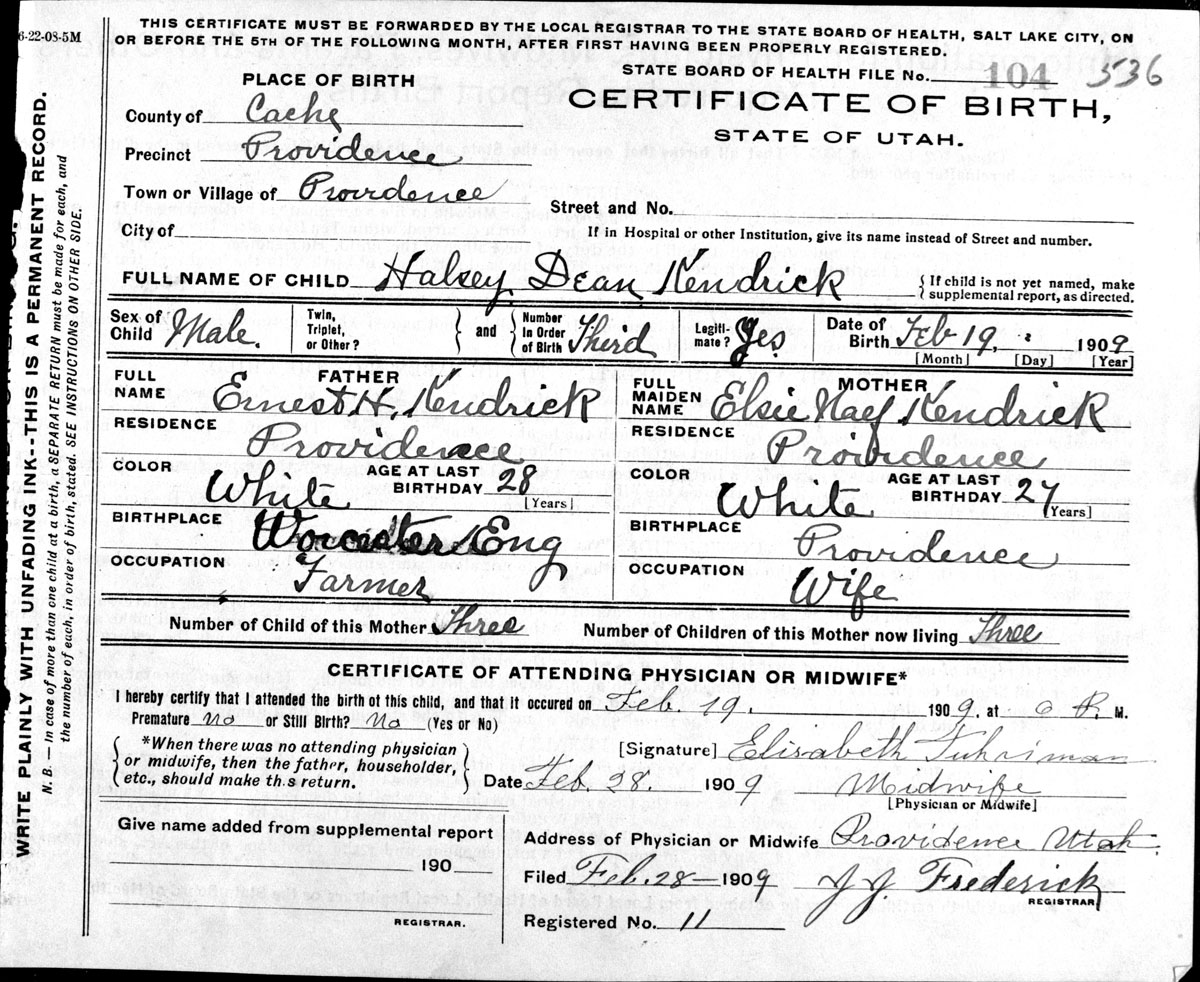 THIS CERTIFICATE MUST BE FORWARDED BY THE LOCAL REGISTRAR TO THE STATE BOARD OF HEALTH, SALT LAKE CITY, ON
OR BEFORE THE 5TH OF THE FOLLOWING MONTH, AFTER FIRST HAVING BEEN PROPERLY REGISTERED.
6-22-08-5M
STATE BOARD OF HEALTH FILE No. 104 536
PLACE OF BIRTH
CERTIFICATE OF BIRTH,
STATE OF UTAH.
County of Cache
Precinct Providence
Town or Village of Providence
Street and No.
City of
If in Hospital or other Institution, give its name instead of Street and number.
FULL NAME OF CHILD Halsey Dean Kendrick { If child is not yet named, make
supplemental report, as directed.
Sex of Child Male. Twin, Triplet, or Other? } and { Number in Order of Birth Third Legiti- mate? Yes Date of Birth Feb 19, 1909
[Month] [Day] [Year]
FATHER
FULL NAME Ernest H. Kendrick
RESIDENCE Providence
COLOR White AGE AT LAST BIRTHDAY 28 [Years]
BIRTHPLACE Worcester Eng
OCCUPATION Farmer
MOTHER
FULL MAIDEN NAME Elsie Naef Kendrick
RESIDENCE Providence
COLOR White AGE AT LAST BIRTHDAY 27 [Years]
BIRTHPLACE Providence
OCCUPATION Wife
Number of Child of this Mother Three Number of Children of this Mother now living Three
CERTIFICATE OF ATTENDING PHYSICIAN OR MIDWIFE*
I hereby certify that I attended the birth of this child, and that it occured on Feb. 19. 1909, at 6 P. M.
Premature no or Still Birth? No (Yes or No)
{ *When there was no attending physician
or midwife, then the father, householder,
etc., should make th.s return. }
[Signature] Elisabeth Fuhriman
Date Feb. 28. 1909 Midwife
[Physician or Midwife]
Give name added from supplemental report
190
REGISTRAR.
Address of Physician or Midwife Providence Utah.
Filed Feb. 28 — 1909 J J Frederick
REGISTRAR
Registered No. 11
WRITE PLAINLY WITH UNFADING INK--THIS IS A PERMANENT RECORD.
N. B. — In case of more than one child at a birth, a SEPARATE RETURN must be made for each, and
the number of each, in order of birth, stated. SEE INSTRUCTIONS ON OTHER SIDE.